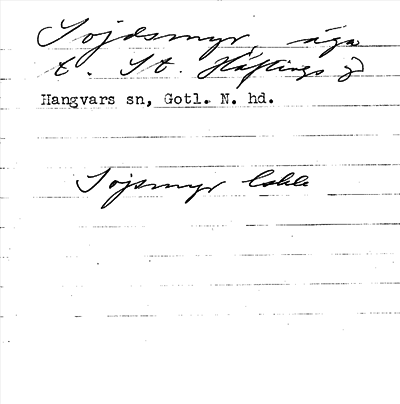 Sojdsmyr, äga
t. St. Häftings g
Hangvars sn, Gotl. N. hd.
Sojsmyr